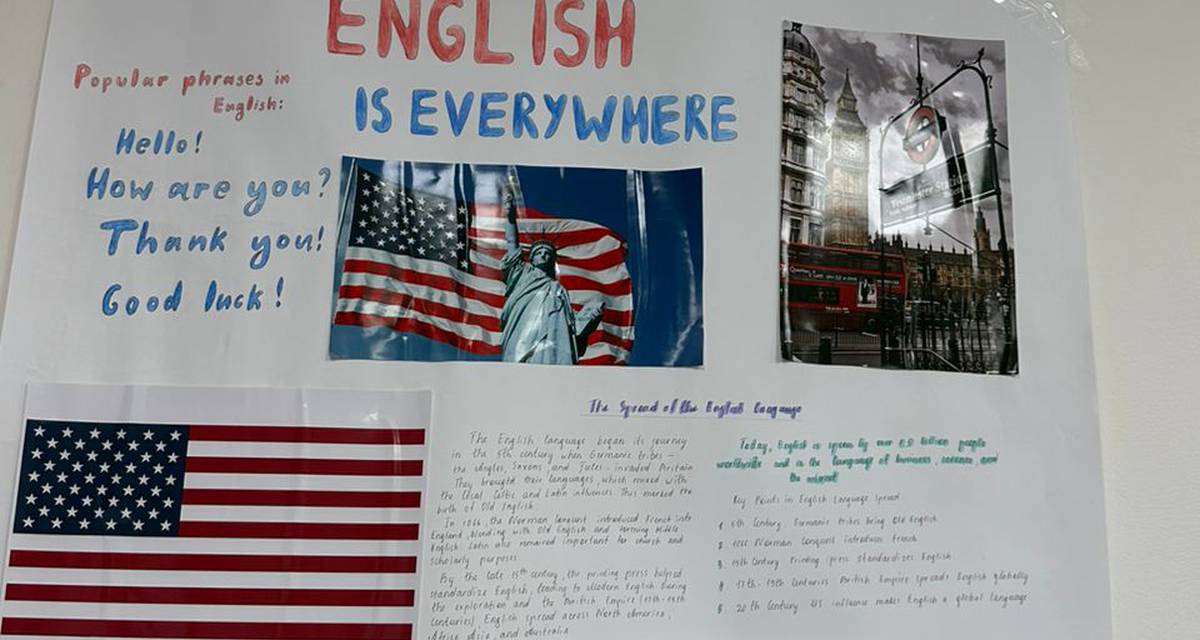 ENGLISH
IS EVERYWHERE
Popular phrases in
English:
Hello!
How are you?
Thank you!
Good luck!
The Spread of the English Language
The English language began its journey
in the 5th century when Germanic tribes -
the Angles, Saxons, and Jutes - invaded Britain
They brought their languages, which mixed with
the local Celtic and Latin influences. This marked the
birth of Old English
In 1066, the Norman Conquest introduced French into
England, blending with Old English and forming Middle
English Latin also remained important for church and
scholarly purposes
By the late 15th century, the printing press helped
standardize English, leading to Modern English During
the exploration and the British Empire
centuries) English spread across North America,
Africa Asia, and Australia
Today, English is spoken by over billion people
worldwide and is the language of business, science, and
the internet
Key Points in English Language Spread
5th Century Germanic tribes bring Old English
2. 1066 Norman Conquest introduces French
3. 15th Century Printing press standardizes English
4. 17th-19th Centuries British Empire spreads English globally
5. 20th Century US influence makes English a global language